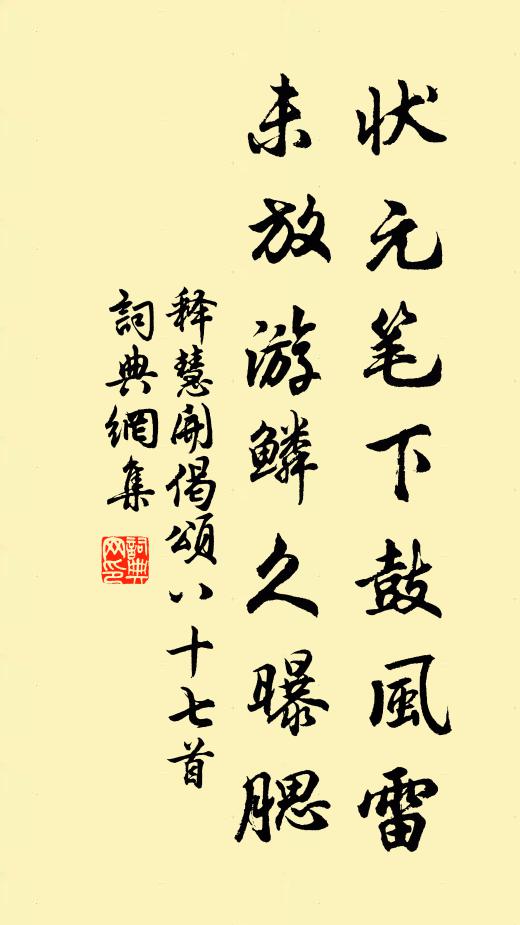 状元笔下鼓風雷
未放游鱗久曝腮
释慧開偈頌八十七首
詞典網集
詞典
网印